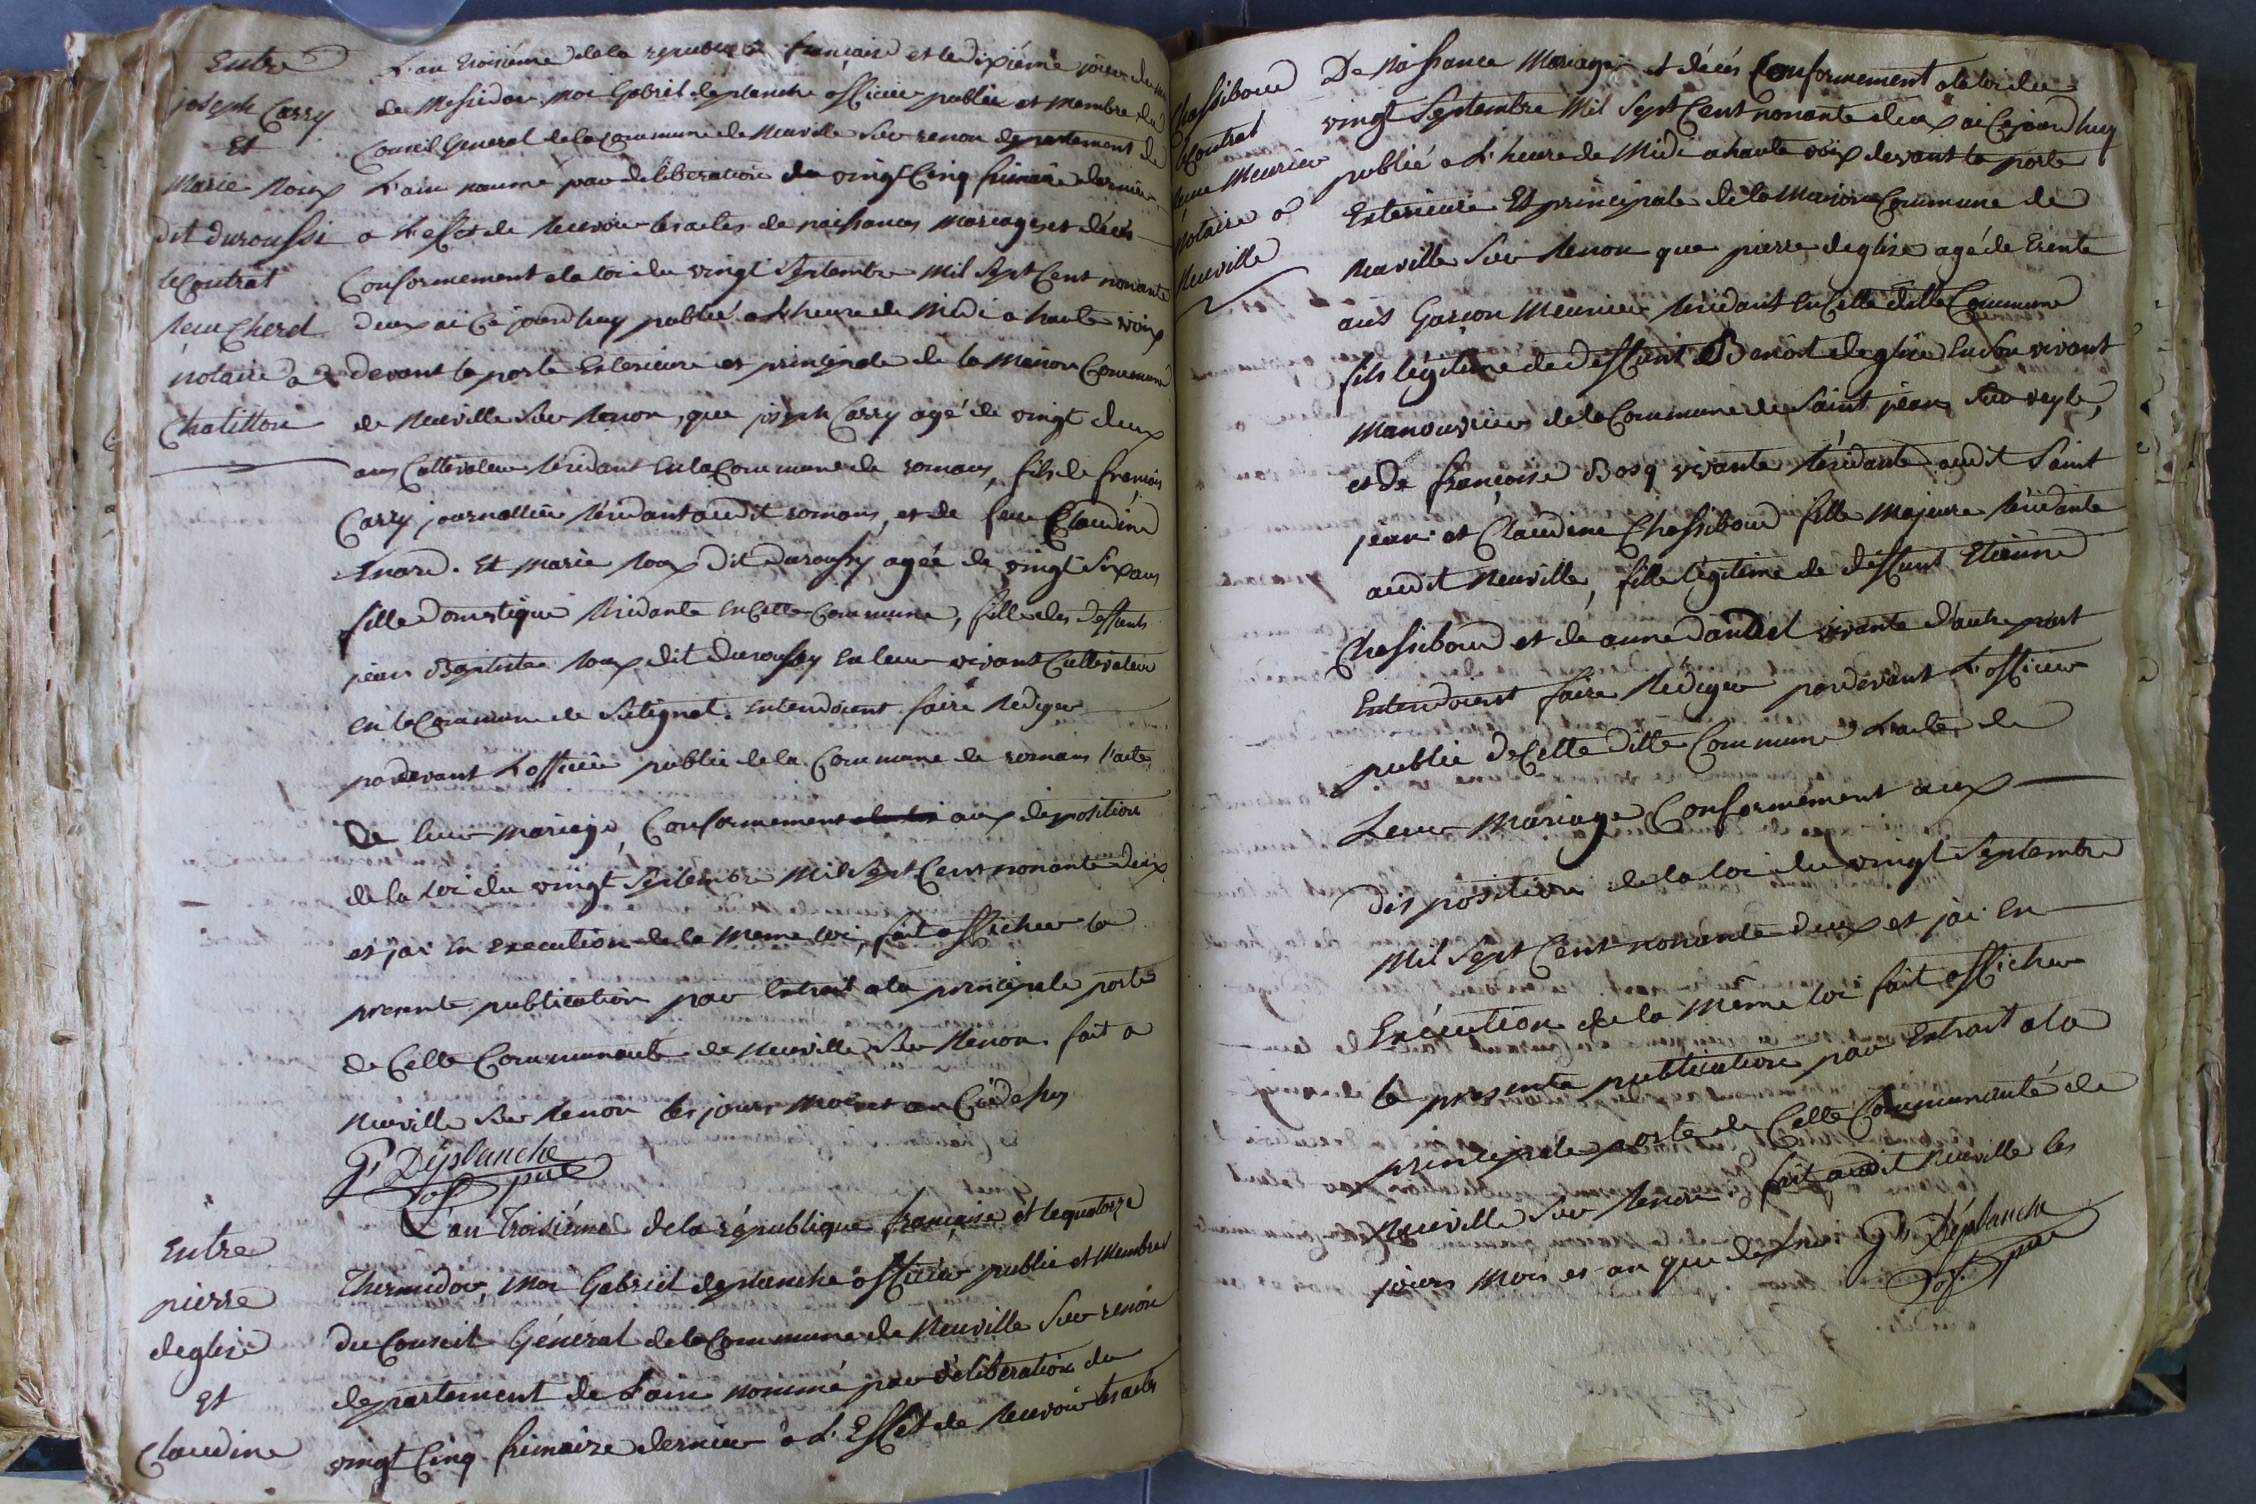 Entre
joseph Carry
Et
Marie Roux
dit duroussi
le Contrat
reçu Cherel
notaire a
Chatillon
L'an troisiéme de la republique française et le dixiéme jour du mois
de Messidor moi Gabriel deplanche officier public et membre du
Conseil General de la Commune de Neuville sur renon departement de
L'ain nommé par deliberation du vingt Cinq frimaire dernier
a L'effet de recevoir les actes de naissances mariages et décés
Conformement a la loi du vingt Septembre Mil Sept Cent nonante
deux ai Cejourdhuy publié a L'heure de Midi a haute voix
devant la porte Exterieure et principale de la Maison Commune
de Neuville Sur Renon, que joseph Carry agé de vingt deux
ans Cultivateur résidant en la Commune de romans, fils de françois
Carry journallier résidant audit romans, et de feue Claudine
Enard. Et Marie Roux dit Duroussy agée de vingt Six ans
fille Domestique résidante en Cette Commune, fille des deffunts
jean Baptiste Roux dit duroussy en leur vivant Cultivateur
en la Commune de Sulignat. Entendoient faire Rediger
pardevant L'officier public de la Commune de romans l'acte
De leur mariage, Conformement a la loi aux disposition
de la loi du vingt Septembre Mil Sept Cent nonante deux
et jai en execution de la meme loi, fait afficher la
presente publication par Extrait a la principale porte
de Cette Communauté de Neuville Sur Renon. fait a
Neuville Sur Renon les jours mois et an Cidessus
Gl Déplanche
of pue
Entre
pierre
deglise
Et
Claudine
L'an Troisiéme de la république française et le quatorze
Thermidor, Moi Gabriel deplanche officier public et Membre
du Conseil Général de la Commune de Neuville Sur renon
departement de L'ain nommé par déliberation du
vingt Cinq frimaire dernier a L'Effet de Recevoir les actes
Chassiboud
le Contrat
reçu Meurier
notaire a
Neuville
De Naissance Mariage et décés Conformement a la loi du
vingt Septembre Mil Sept Cent nonante deux ai Cejourdhuy
publié a L'heure de Midi a haute voix devant la porte
Exterieure Et principale de la Maison Commune de
Neuville Sur Renon que pierre deglise agé de trente
ans Garçon Meunier résidant en Cette ditte Commune
fils légitime de deffunt Benoit deglise en Son vivant
Manouvrier de la Commune de Saint jean Sur veyle,
et de françoise Bosq vivante résidante audit Saint
jean et Claudine Chassiboud fille Majeure résidante
audit Neuville, fille légitime de deffunt Etienne
Chassiboud et de anne Dandel vivante d'autre part
Entendoient faire Rédiger pardevant L'officier
public de Cette ditte Commune L'acte de
Leur Mariage Conformément aux
disposition de la loi du vingt Septembre
Mil Sept Cent nonante deux et jai en
Exécution de la Même loi fait afficher
la presente publication par Extrait a la
principale porte de Cette Communauté de
Neuville Sur Renon fait audit Neuville les
jours Mois et an que dessus Gl Déplanche
of pue